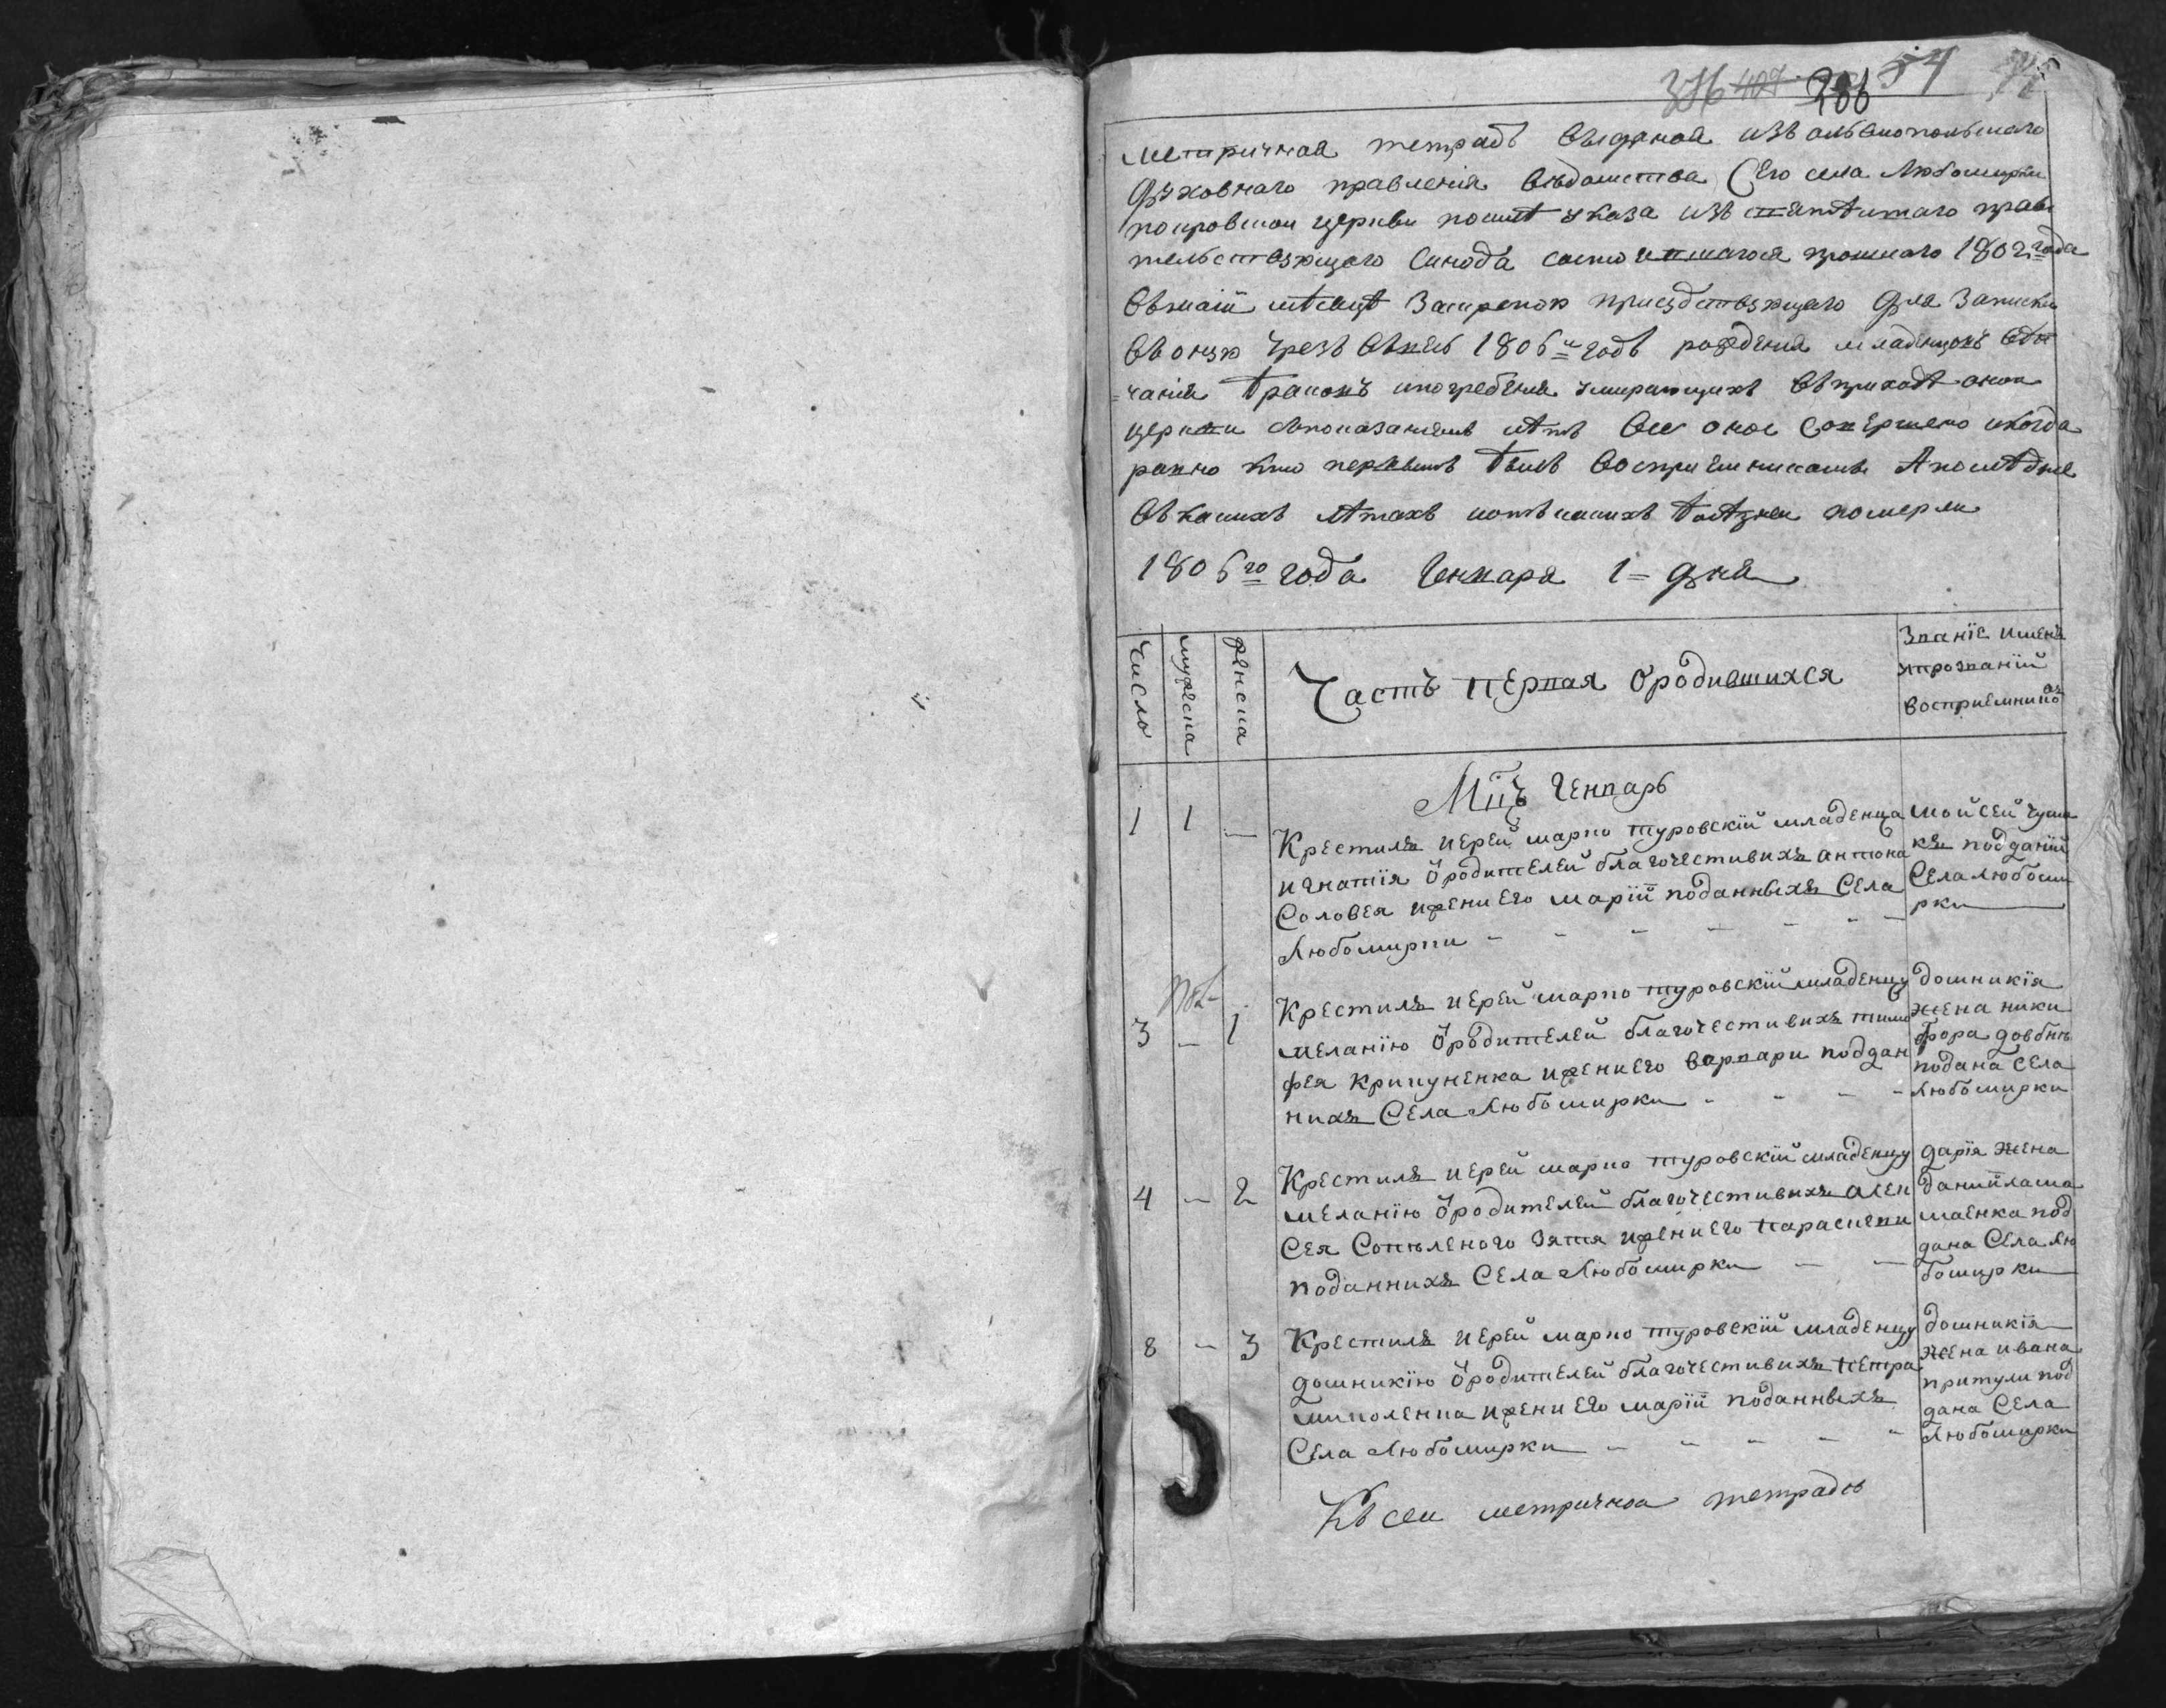 376 407 206 54
Метричная тетрадь выданая изъ ольвиопольскаго
духовнаго правленія вѣдомства Его села Любомирки
покровской церкви посилѣ указа изъ святѣйшаго прави
тельствующаго Синода состоявшагося прошлаго 1802 года
въ маій мѣсяцѣ Закрепою присудствующаго для Записки
въ оную чрезъ весь 1806й годъ рожденія младенцовъ вѣн
чанія браковъ ипогребенія умирающихъ въприходѣ оной
церкви споказаніемъ мѣтъ все оное совершено икогда
равно кто первымъ билъ воспріемникомъ Апослѣдніе
въ какихъ лѣтахъ иотъ какихъ болѣзнеи померли
1806го года Генваря 1= дня
Число
мужеска
женска
Часть первая Ородившихся
Званїе именъ
ипрозванїй
воспрїемниковъ
Мцъ Генварь
1 1 — Крестилъ иерей марко туровскїй младенца
игнатїя Ѿродителей благочестивихъ антона
Соловея ижени его марїй поданныхъ Села
Любомирки
мойсей чума
къ подданїй
Села любоми
рки
3 — 1 Крестилъ иерей марко туровскїй младенцу
меланїю Ѿродителей благочестивихъ тимо
фея Крикуненка ижени его варвари поддан
нихъ Села Любомирки
домникїя
жена ники
фора довбнѣ
подана Села
Любомирки
4 — 2 Крестилъ иерей марко туровскїй младенцу
меланїю Ѿродителей благочестивихъ алек
Сея Сопѣленого Зятя ижени его параскеви
поданнихъ Села Любомирки
дарїя жена
данийлама
маенка под
дана Села Лю
бомирки
8 — 3 Крестилъ иерей марко туровскїй младенцу
домникїю Ѿродителей благочестивихъ петра
миколенка ижени его марїй поданныхъ
Села Любомирки
домникїя
жена ивана
притули под
дана Села
Любомирки
Къ сеи метричной тетрадѣ